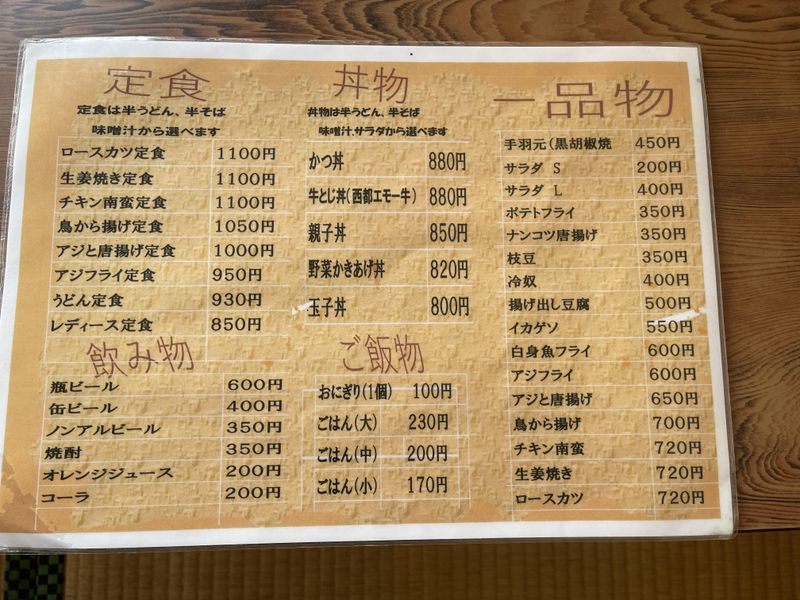 定食
定食は半うどん、半そば
味噌汁から選べます
ロースカツ定食 1100円
生姜焼き定食 1100円
チキン南蛮定食 1100円
鳥から揚げ定食 1050円
アジと唐揚げ定食 1000円
アジフライ定食 950円
うどん定食 930円
レディース定食 850円
飲み物
瓶ビール 600円
缶ビール 400円
ノンアルビール 350円
焼酎 350円
オレンジジュース 200円
コーラ 200円
丼物
丼物は半うどん、半そば
味噌汁,サラダから選べます
かつ丼 880円
牛とじ丼(西都エモー牛) 880円
親子丼 850円
野菜かきあげ丼 820円
玉子丼 800円
ご飯物
おにぎり(1個) 100円
ごはん(大) 230円
ごはん(中) 200円
ごはん(小) 170円
一品物
手羽元(黒胡椒焼 450円
サラダ S 200円
サラダ L 400円
ポテトフライ 350円
ナンコツ唐揚げ 350円
枝豆 350円
冷奴 400円
揚げ出し豆腐 500円
イカゲソ 550円
白身魚フライ 600円
アジフライ 600円
アジと唐揚げ 650円
鳥から揚げ 700円
チキン南蛮 720円
生姜焼き 720円
ロースカツ 720円